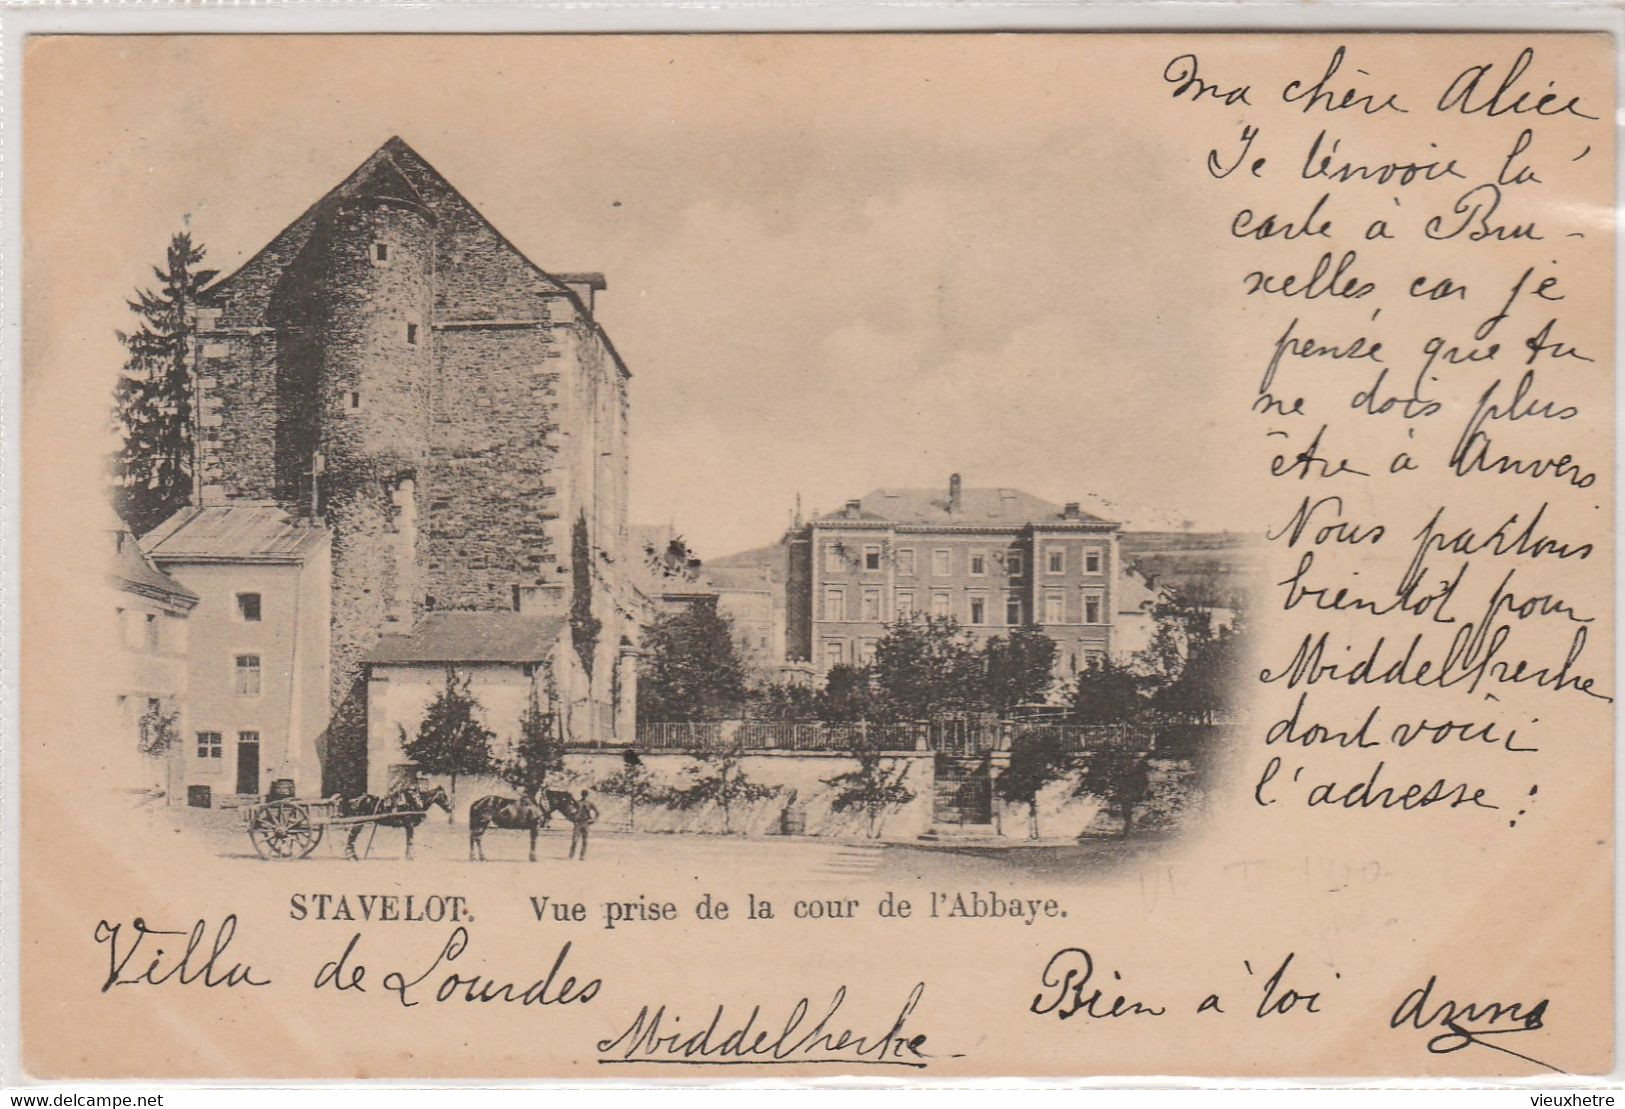 Ma chère Alice
Je t'énvoie la
carte à Bru-
xelles car je
pense que tu
ne dois plus
être à Anvers
Nous partons
bientôt pour
Middelkerke
dont voiçi
l'adresse :
STAVELOT. Vue prise de la cour de l'Abbaye.
Villa de Lourdes
Middelkerke
Bien à toi
delcampe.net
vieuxhetre